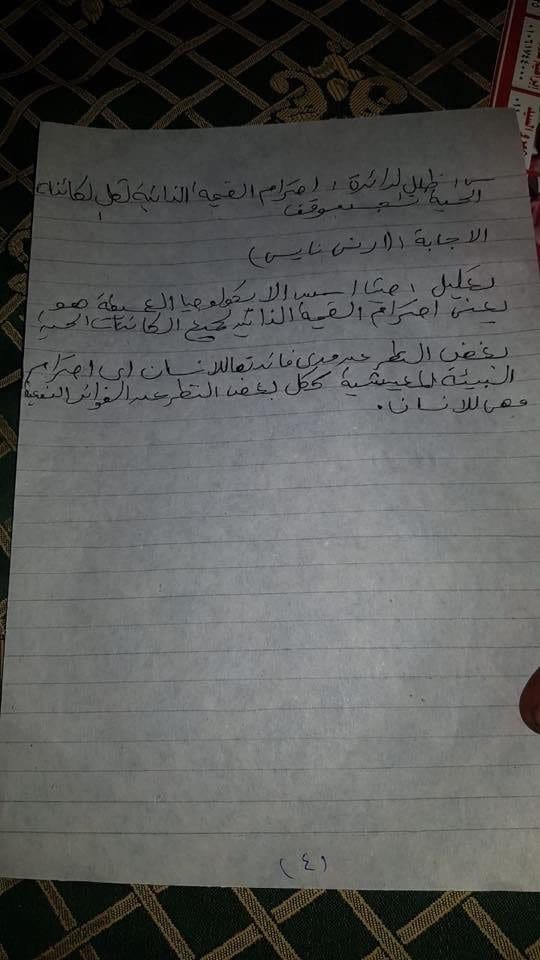 س: ظلل الدائرة: احترام القيمة الذاتية لكل الكائنات
الحية موقف
الاجابة: (ارنى نايس)
تعليل: احيث اسس الايكولوجيا العميقة هو
يعنى احترام القيمة الذاتية لجميع الكائنات الحية
بغض النظر عن مدى فائدتها للانسان اى احترام
البيئة المعيشية ككل بغض النظر عن الفوائد النفعية
وهى للانسان.
(٤)